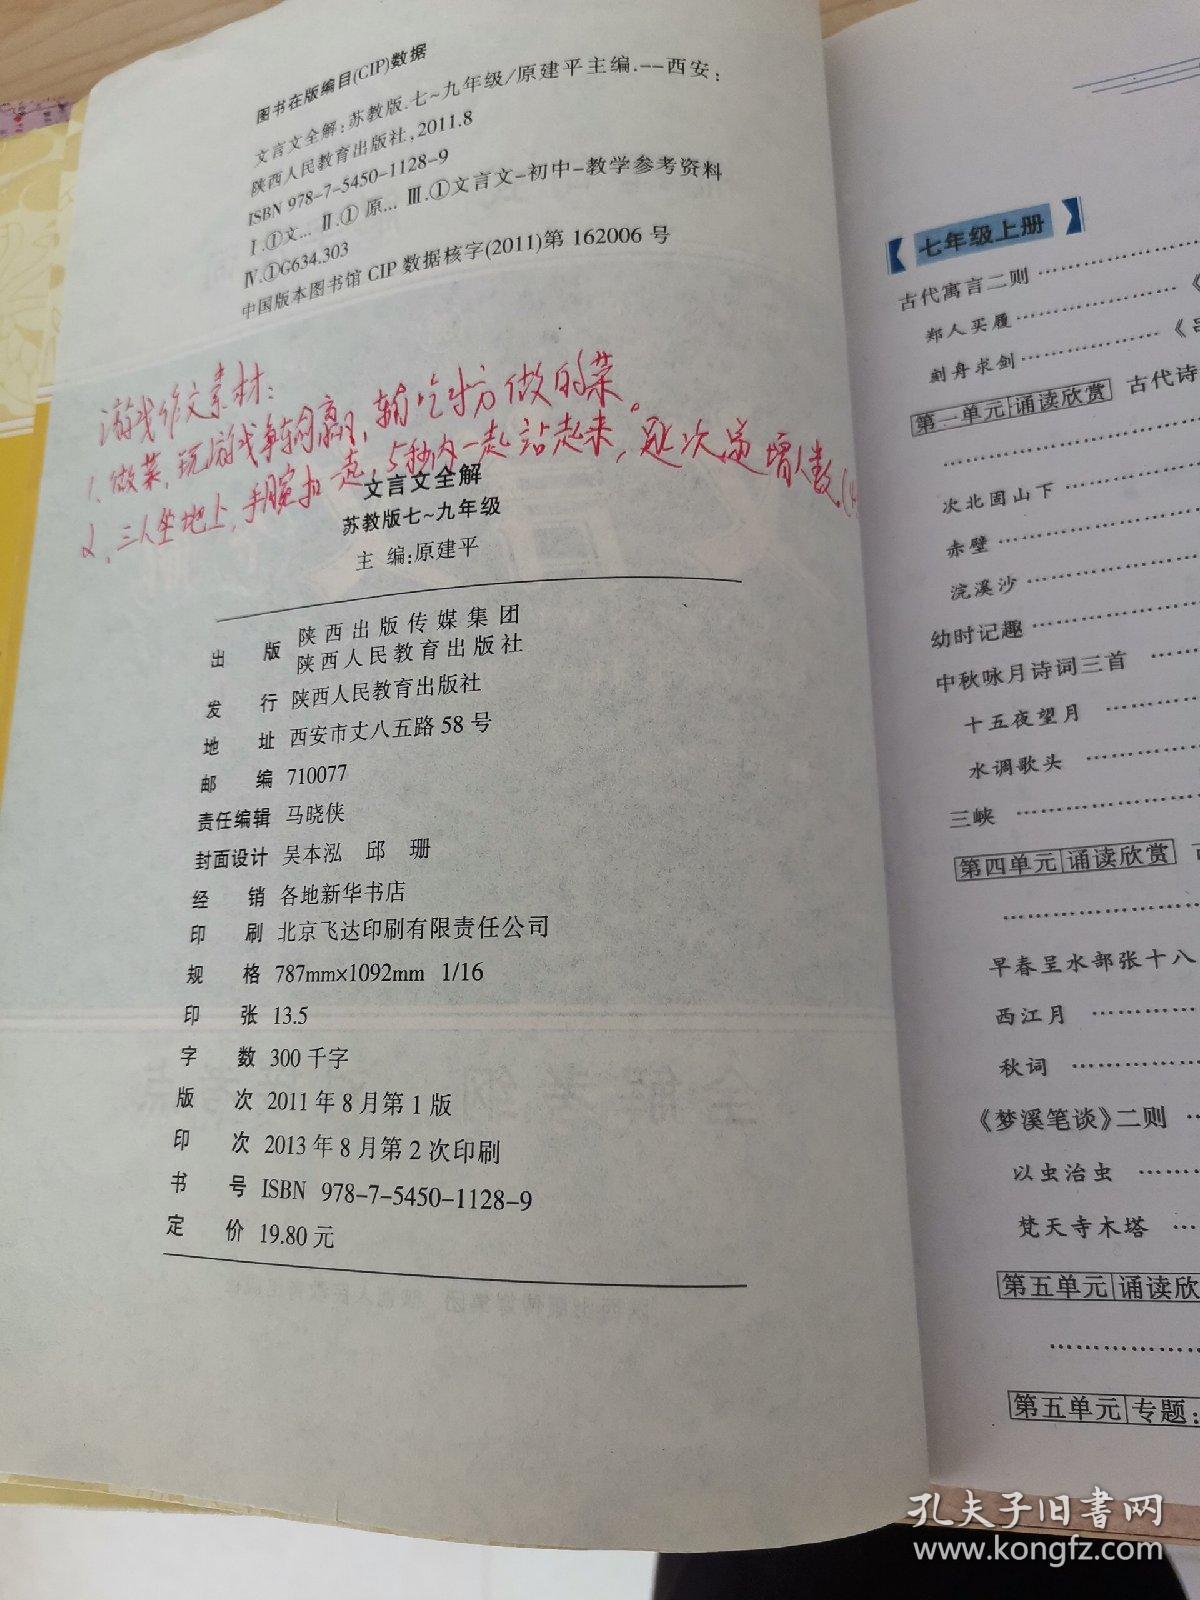 图书在版编目(CIP)数据
文言文全解:苏教版.七~九年级/原建平主编.--西安:
陕西人民教育出版社,2011.8
ISBN 978-7-5450-1128-9
Ⅰ.①文… Ⅱ.①原… Ⅲ.①文言文-初中-教学参考资料
Ⅳ.①G634.303
中国版本图书馆CIP数据核字(2011)第162006号
游戏作文素材:
1、做菜,玩游戏争输赢,输吃对方做的菜。
2、三人坐地上,手腕扣一起,5秒内一起站起来,逐次递增人数
文言文全解
苏教版七~九年级
主 编:原建平
出 版 陕西出版传媒集团
陕西人民教育出版社
发 行 陕西人民教育出版社
地 址 西安市丈八五路58号
邮 编 710077
责任编辑 马晓侠
封面设计 吴本泓 邱 珊
经 销 各地新华书店
印 刷 北京飞达印刷有限责任公司
规 格 787mm×1092mm 1/16
印 张 13.5
字 数 300千字
版 次 2011年8月第1版
印 次 2013年8月第2次印刷
书 号 ISBN 978-7-5450-1128-9
定 价 19.80元
【七年级上册】
古代寓言二则
郑人买履
刻舟求剑
第一单元 诵读欣赏 古代诗
次北固山下
赤壁
浣溪沙
幼时记趣
中秋咏月诗词三首
十五夜望月
水调歌头
三峡
第四单元 诵读欣赏
早春呈水部张十八
西江月
秋词
《梦溪笔谈》二则
以虫治虫
梵天寺木塔
第五单元 诵读欣
第五单元 专题:
孔夫子旧书网
www.kongfz.com